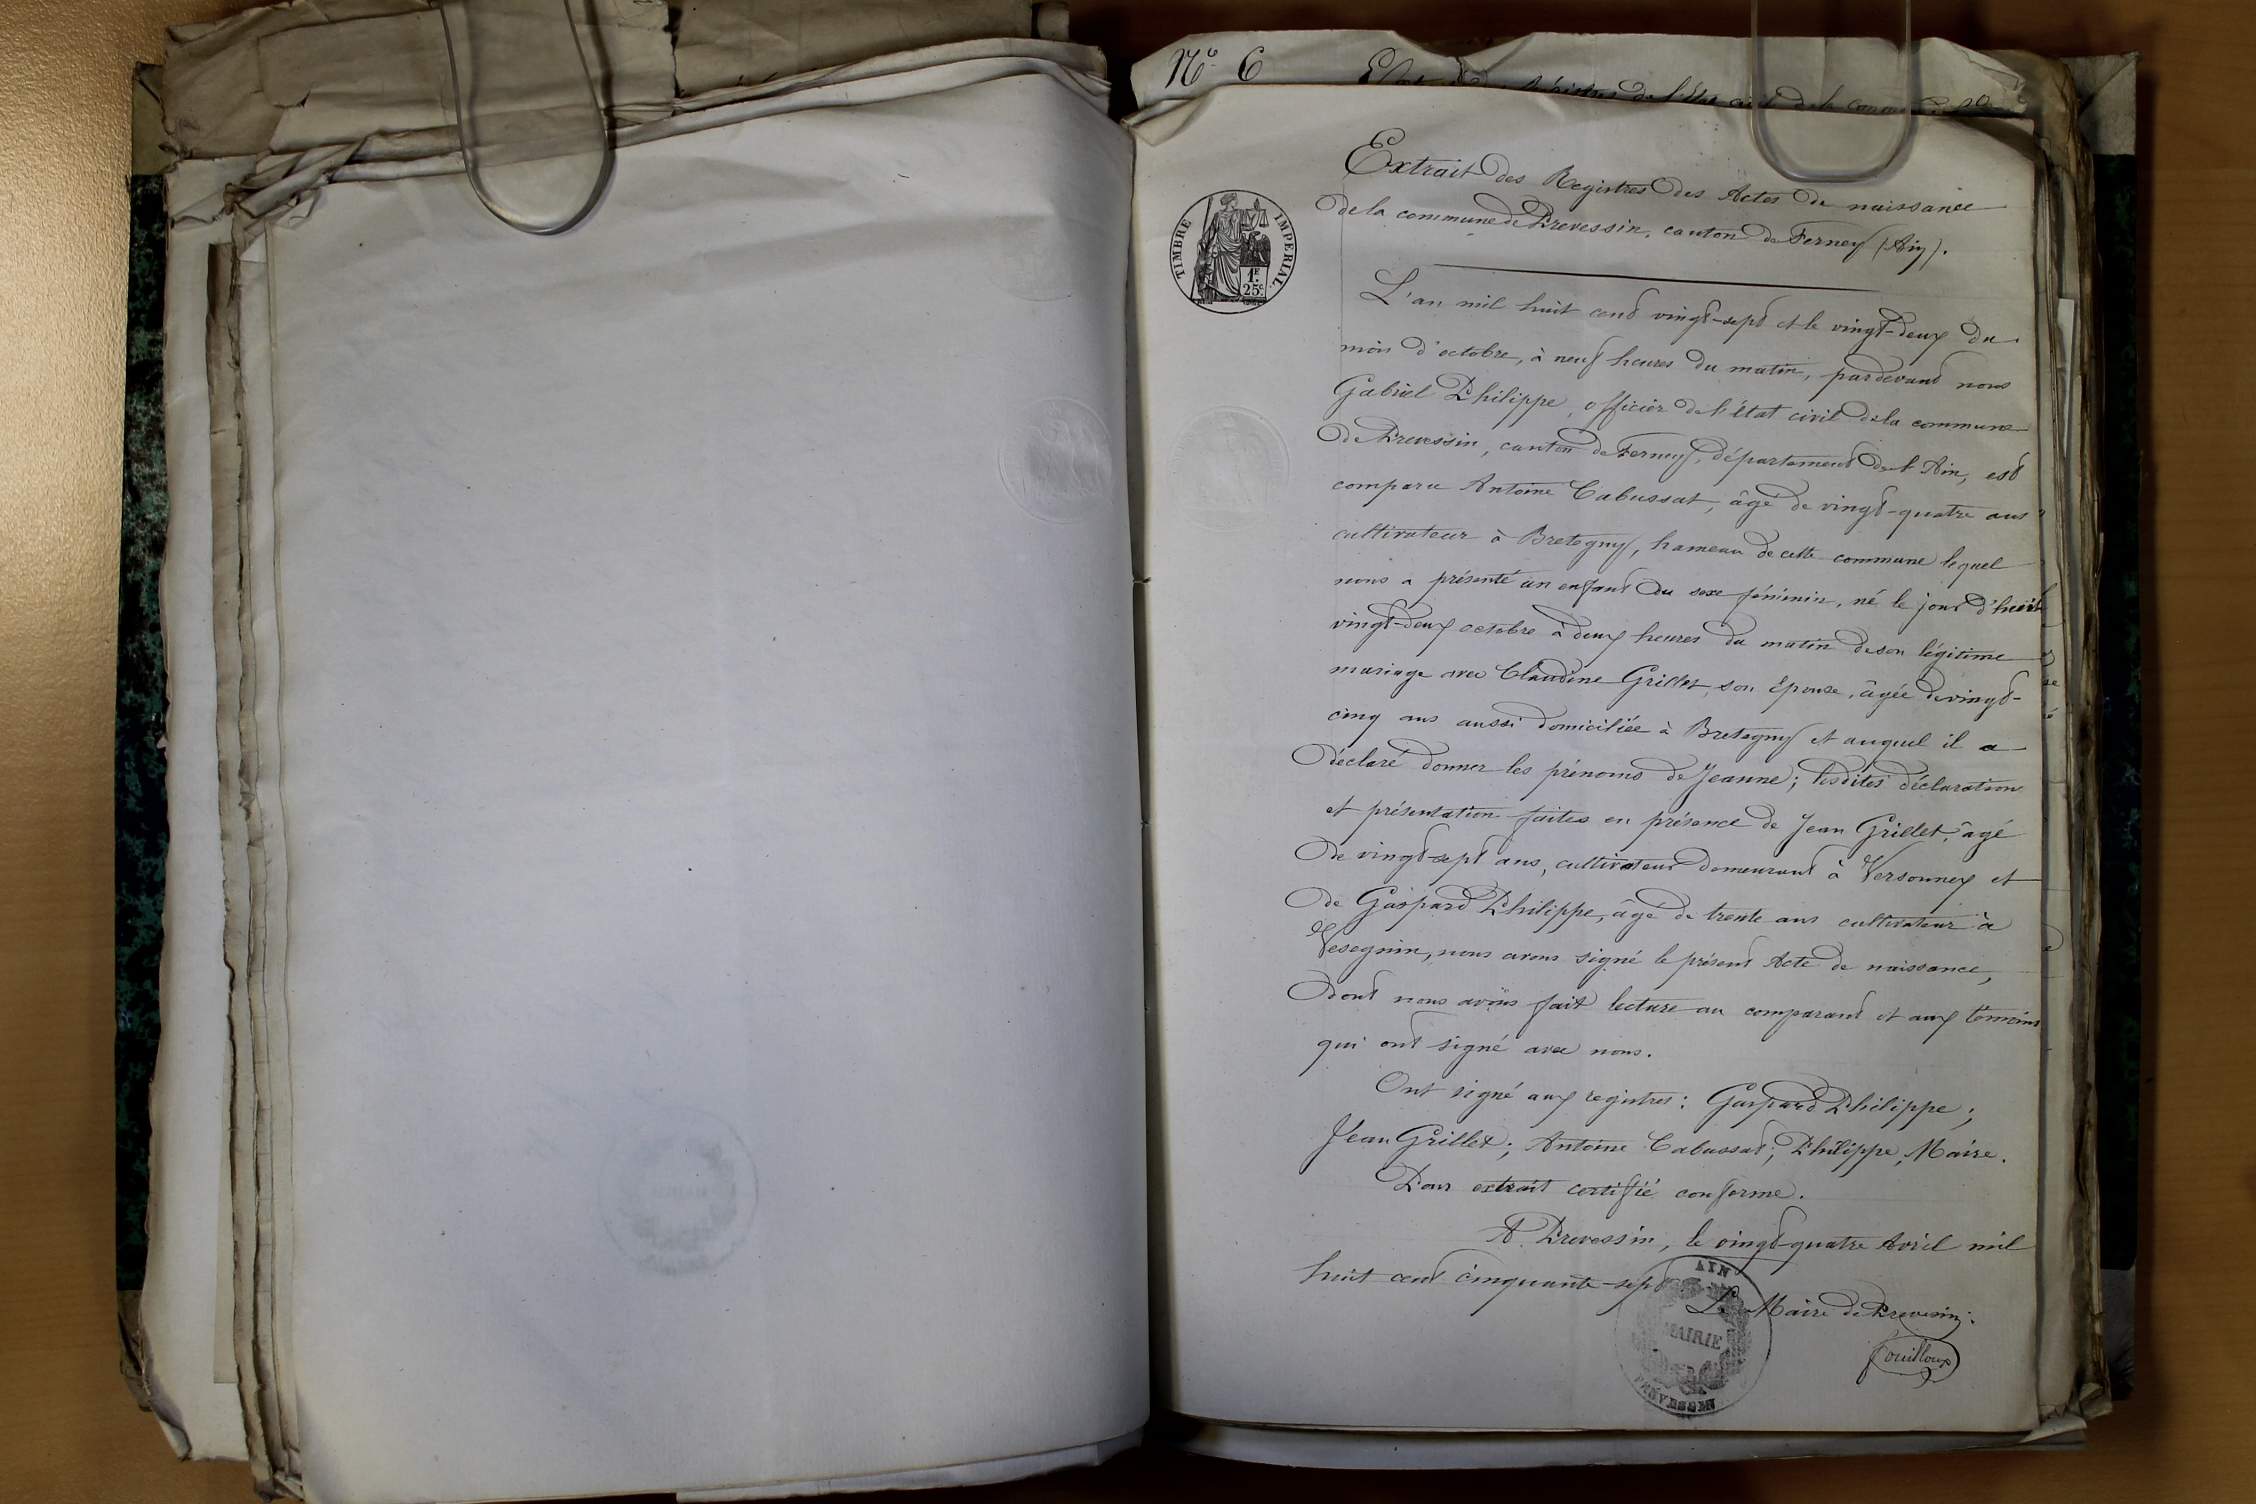 Nº 6
TIMBRE IMPERIAL
1F
25c
Extrait des Registres des Actes de naissance
de la commune de Prevessin, canton de Ferney (Ain).
L'an mil huit cent vingt-sept et le vingt-deux du
mois d'octobre, à neuf heures du matin, pardevant nous
Gabriel Philippe, officier de l'état civil de la commune
de Prevessin, canton de Ferney, département de l'Ain, est
comparu Antoine Cabussat, âgé de vingt-quatre ans
cultivateur à Bretegny, hameau de cette commune lequel
nous a présenté un enfant du sexe féminin, né le jour d'hier
vingt-deux octobre à deux heures du matin de son légitime
mariage avec Claudine Grillet, son épouse, âgée de vingt-
cinq ans aussi domiciliée à Bretegny et auquel il a
déclaré donner les prénoms de Jeanne; lesdites déclaration
et présentation faites en présence de Jean Grillet, âgé
de vingt-sept ans, cultivateur demeurant à Versonnex et
de Gaspard Philippe, âgé de trente ans cultivateur à
Vesegnin, nous avons signé le présent Acte de naissance,
dont nous avons fait lecture au comparant et aux témoins
qui ont signé avec nous.
Ont signé aux registres: Gaspard Philippe;
Jean Grillet; Antoine Cabussat; Philippe, Maire.
Pour extrait certifié conforme.
A Prevessin, le vingt-quatre Avril mil
huit cent cinquante-sept
Le Maire de Prevessin:
Fouilloux
AIN
MAIRIE
PRÉVESSIN